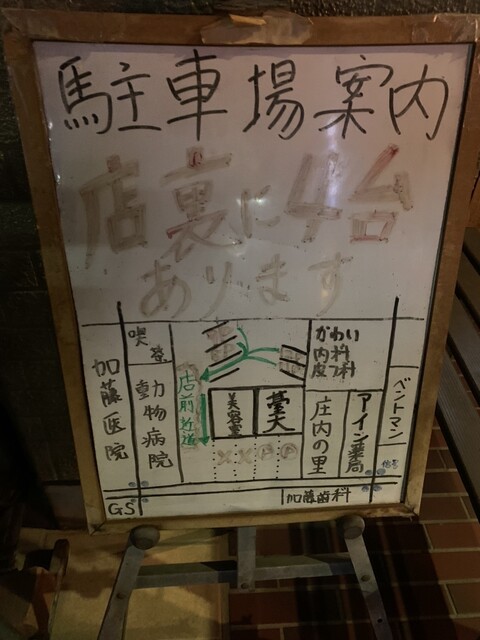 駐車場案内
店裏に4台
あります
喫茶
かわい
内科
皮フ科
加藤医院
動物病院
店前近道
美容室
庄内の里
アイン薬局
ベントマン
信号
X X P P
GS
加藤歯科